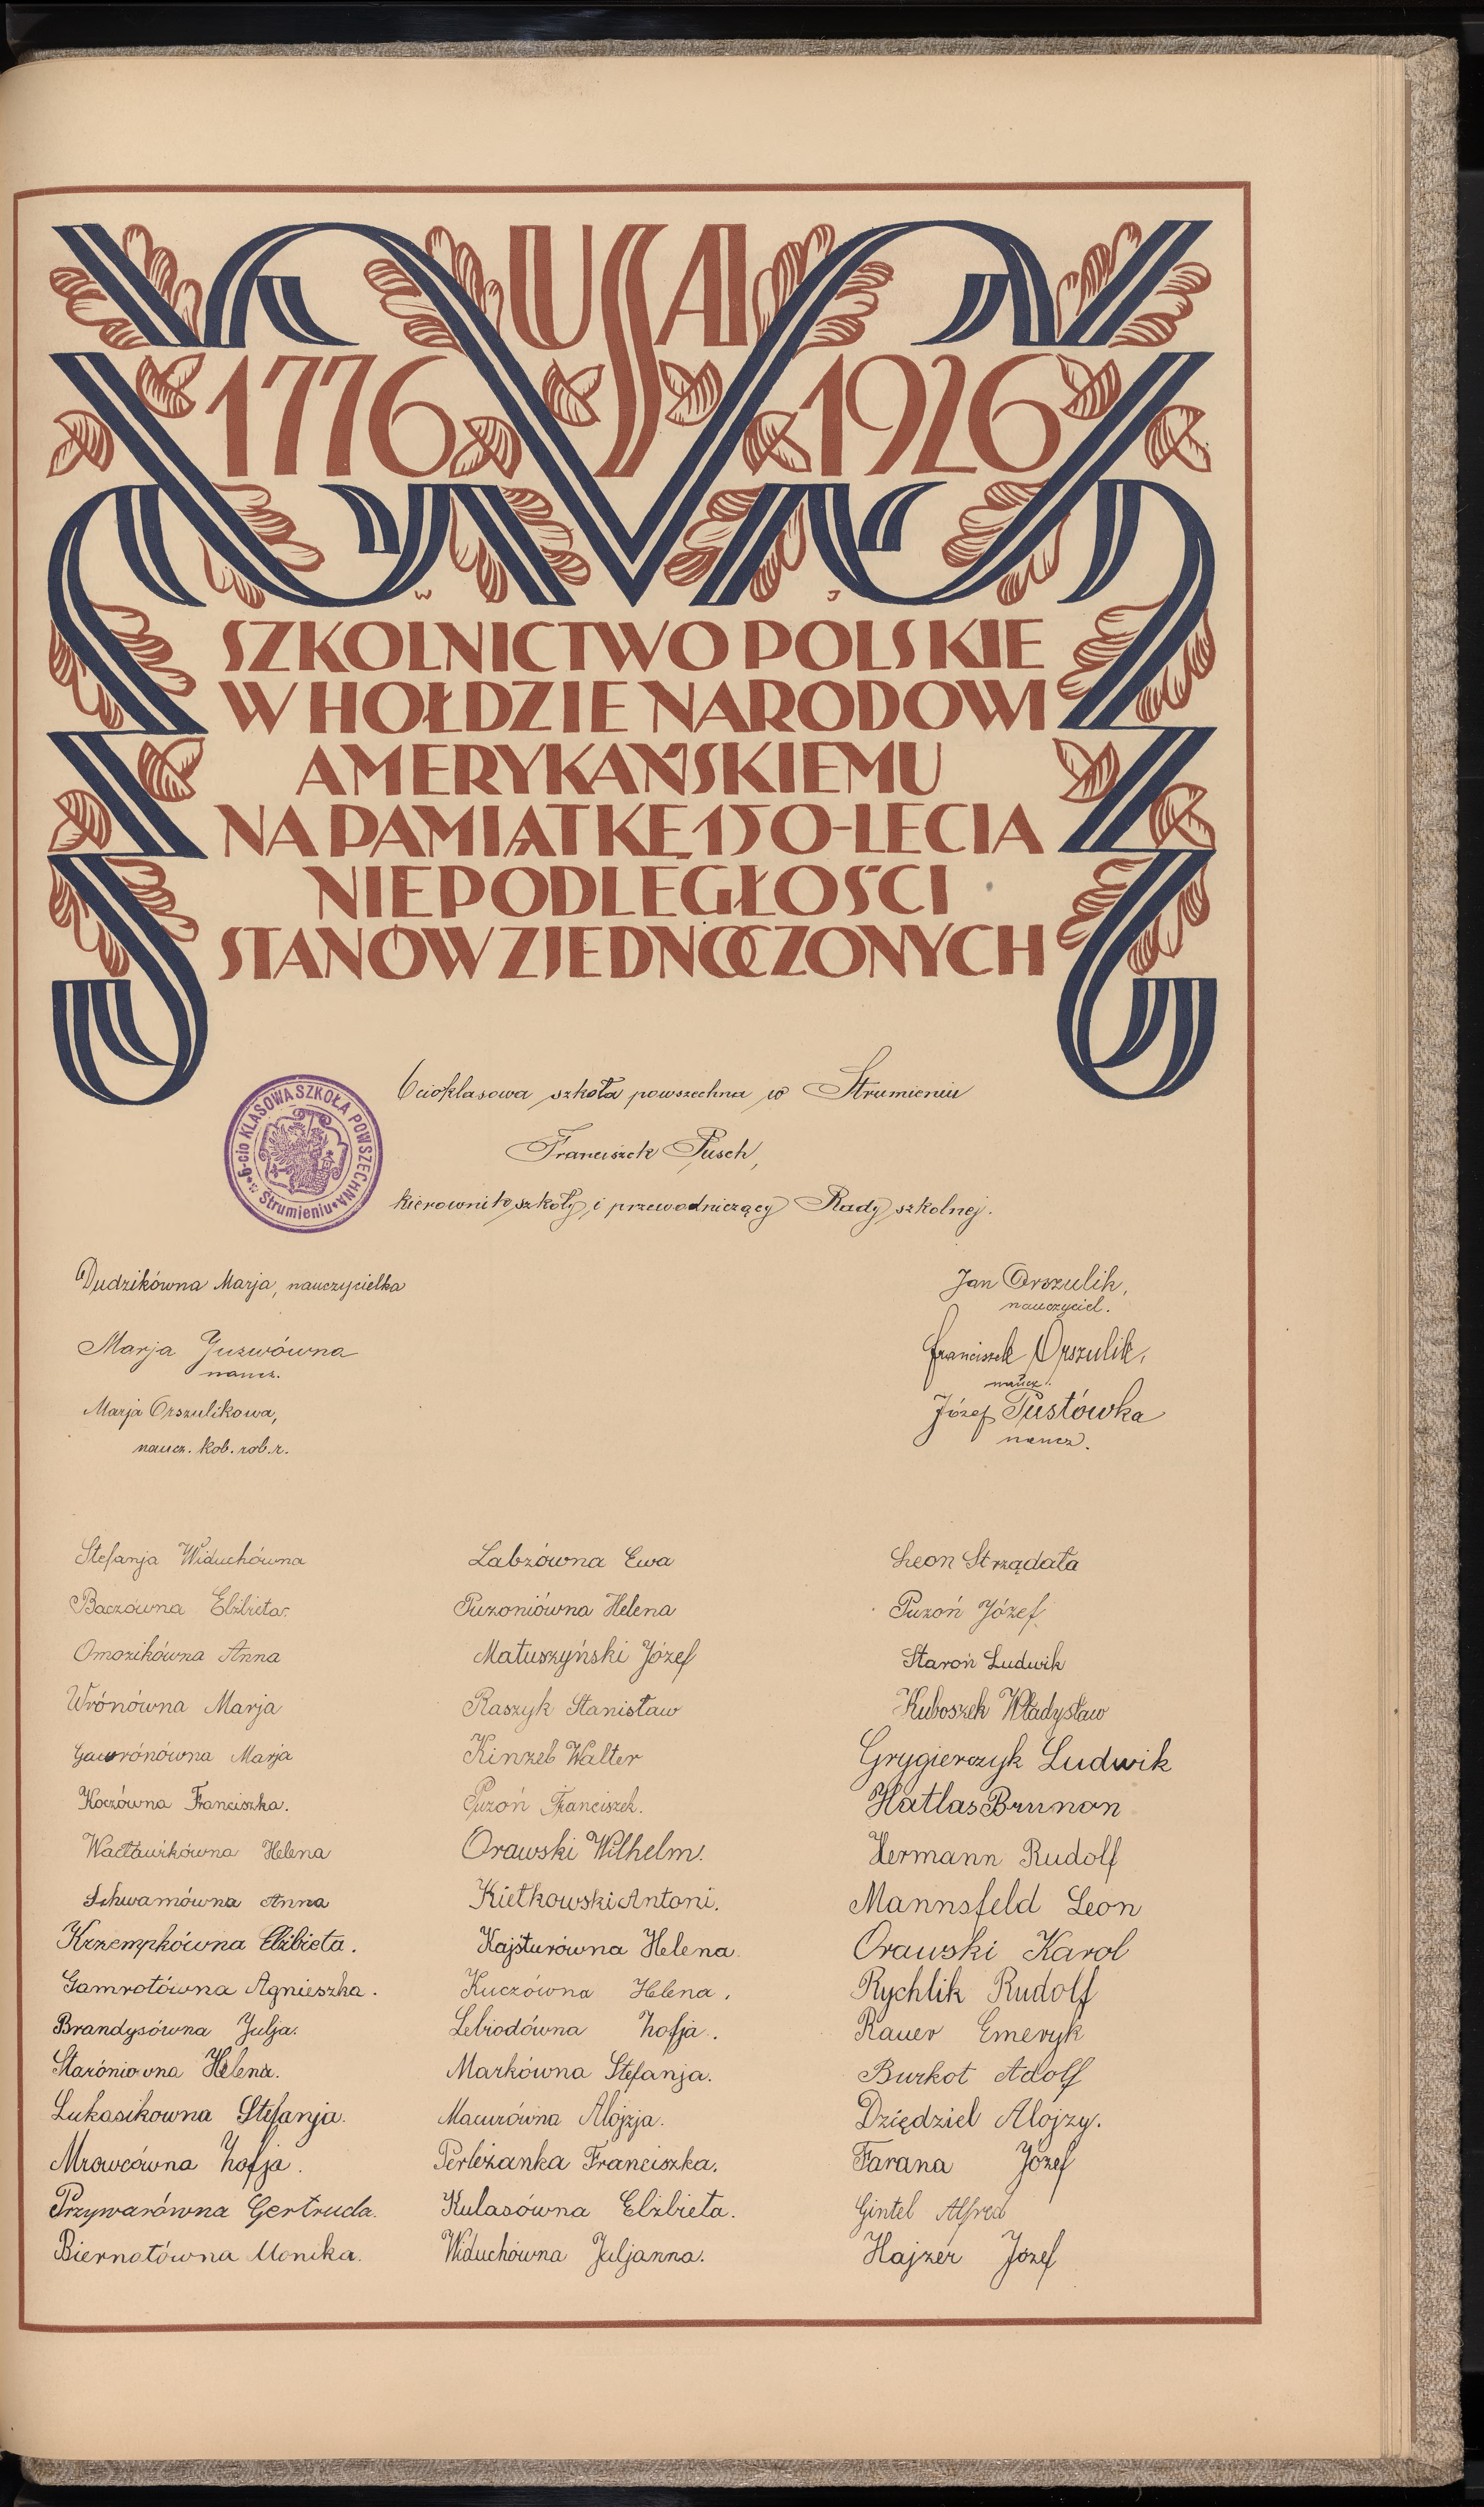 USA
1776 1926
W J
SZKOLNICTWO POLSKIE
W HOŁDZIE NARODOWI
AMERYKAŃSKIEMU
NA PAMIĄTKĘ 150-LECIA
NIEPODLEGŁOŚCI
STANÓW ZJEDNOCZONYCH
6-cio KLASOWA SZKOŁA POWSZECHNA
w Strumieniu
6cioklasowa szkoła powszechna w Strumieniu
Franciszek Pusch,
kierownik szkoły i przewodniczący Rady szkolnej.
Dudzikówna Marja, nauczycielka
Marja Juzwówna
naucz.
Marja Orszulikowa,
naucz. kob. rob. r.
Jan Orszulik,
nauczyciel.
Franciszek Orszulik,
naucz.
Józef Pustówka
naucz.
Stefanja Widuchówna
Baczówna Elżbieta
Omozikówna Anna
Wrónówna Marja
Gawrónówna Marja
Koczówna Franciszka.
Wacławikówna Helena
Schwamówna Anna
Krzempkówna Elżbieta.
Gamrotówna Agnieszka.
Brandysówna Julja.
Staróniowna Helena.
Lukasikowna Stefanja.
Mrowcówna Zofja.
Przywarówna Gertruda.
Biernatówna Monika.
Labzówna Ewa
Puzoniówna Helena
Matuszyński Józef
Raszyk Stanisław
Kinzel Walter
Puzoń Franciszek.
Orawski Wilhelm.
Kiełkowski Antoni.
Kajsturówna Helena.
Kuczówna Helena.
Lebiodówna Zofja.
Markówna Stefanja.
Macurówna Alojzja.
Perleżanka Franciszka.
Kulasówna Elżbieta.
Widuchówna Juljanna.
Leon Strządała
Puzoń Józef.
Staroń Ludwik
Kuboszek Władysław
Grygierczyk Ludwik
Hatlas Brunon
Hermann Rudolf
Mannsfeld Leon
Orawski Karol
Rychlik Rudolf
Rauer Emeryk
Burkot Adolf
Dziędziel Alojzy.
Farana Józef
Gintel Alfred
Hajzer Józef